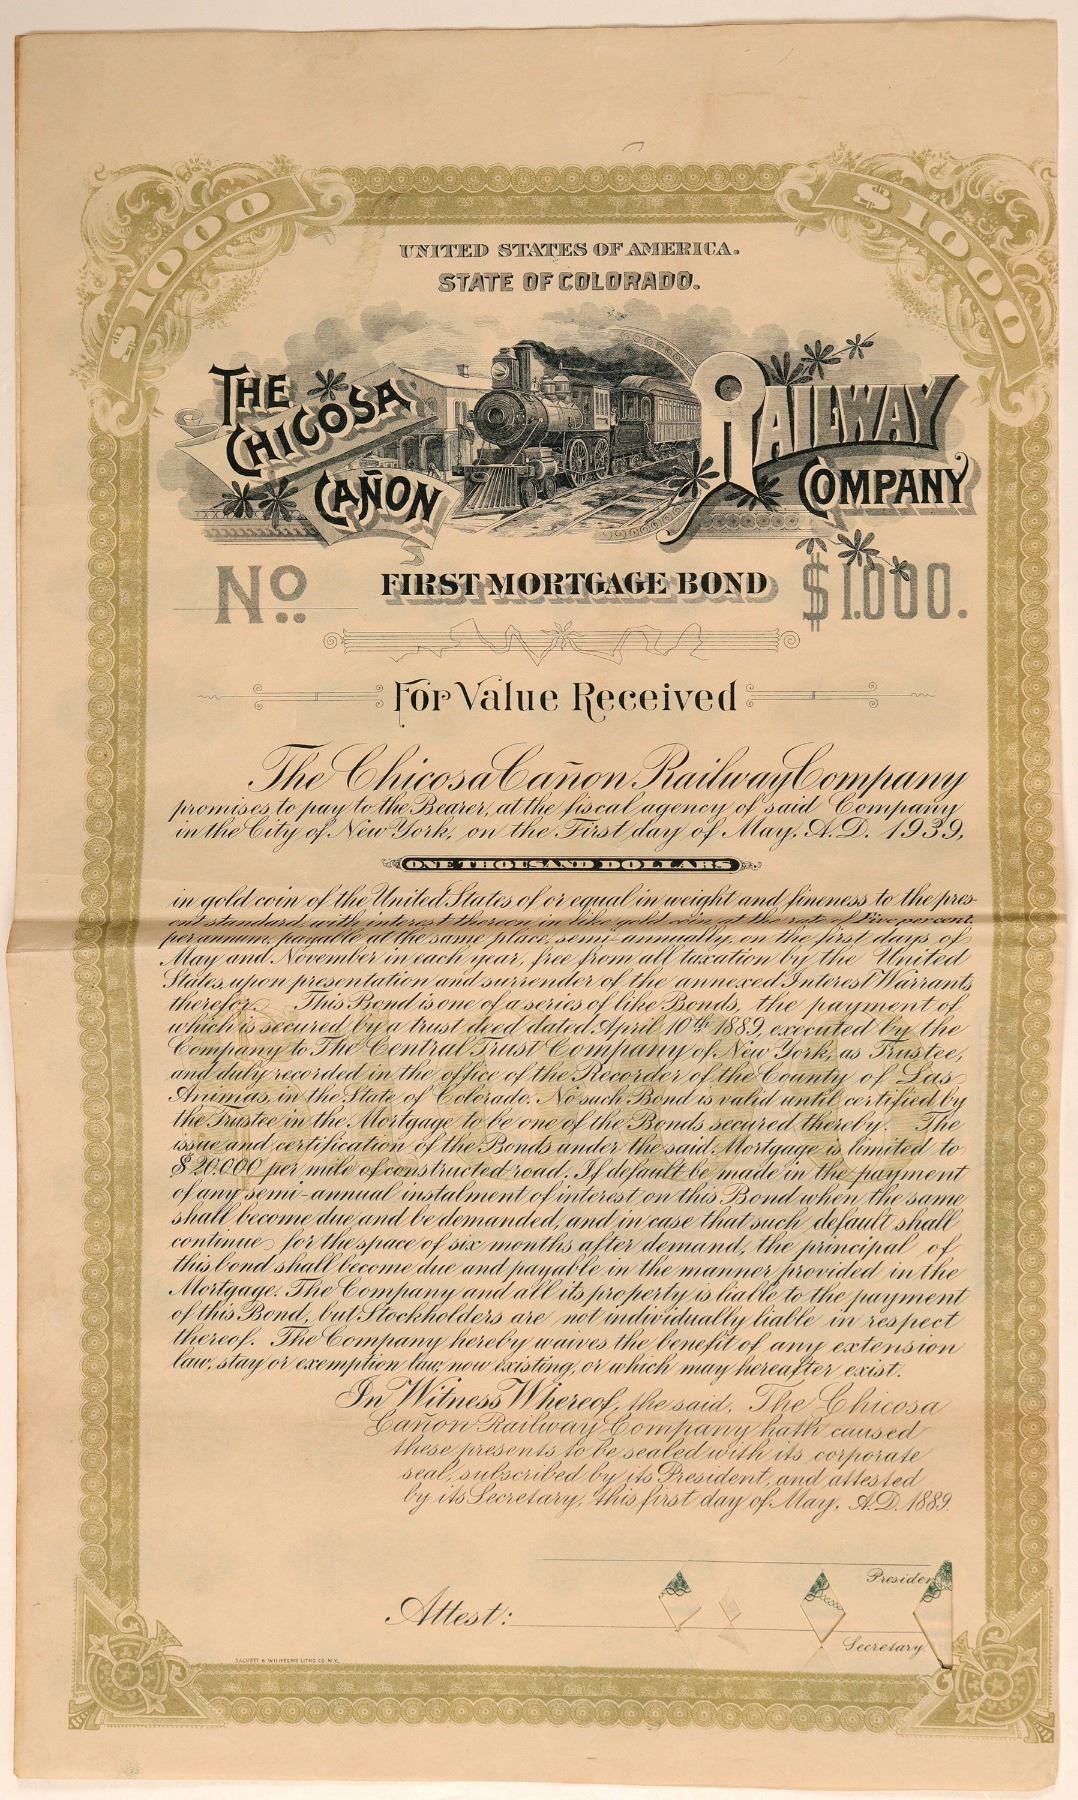 $1000
$1000
UNITED STATES OF AMERICA.
STATE OF COLORADO.
THE
CHICOSA
CAÑON
RAILWAY
COMPANY
No.
FIRST MORTGAGE BOND
$1.000.
For Value Received
The Chicosa Cañon Railway Company
promises to pay to the Bearer, at the fiscal agency of said Company
in the City of New York, on the First day of May, A.D. 1939,
ONE THOUSAND DOLLARS
in gold coin of the United States of or equal in weight and fineness to the pres-
ent standard, with interest thereon, in like gold coin, at the rate of Five per cent.
per annum, payable at the same place, semi-annually, on the first days of
May and November in each year, free from all taxation by the United
States, upon presentation and surrender of the annexed Interest Warrants
therefor. This Bond is one of a series of like Bonds, the payment of
which is secured by a trust deed dated April 10th 1889, executed by the
Company to The Central Trust Company of New York, as Trustee,
and duly recorded in the office of the Recorder of the County of Las
Animas, in the State of Colorado. No such Bond is valid until certified by
the Trustee in the Mortgage to be one of the Bonds secured thereby. The
issue and certification of the Bonds under the said Mortgage is limited to
$20.000 per mile of constructed road. If default be made in the payment
of any semi-annual instalment of interest on this Bond when the same
shall become due and be demanded, and in case that such default shall
continue for the space of six months after demand, the principal of
this bond shall become due and payable in the manner provided in the
Mortgage. The Company and all its property is liable to the payment
of this Bond, but Stockholders are not individually liable in respect
thereof. The Company hereby waives the benefit of any extension
law, stay or exemption law, now existing, or which may hereafter exist.
In Witness Whereof, the said, The Chicosa
Cañon Railway Company hath caused
these presents to be sealed with its corporate
seal, subscribed by its President, and attested
by its Secretary, this first day of May, A.D. 1889.
President
Attest:
Secretary.
SACKETT & WILHELMS LITHO. CO. N.Y.